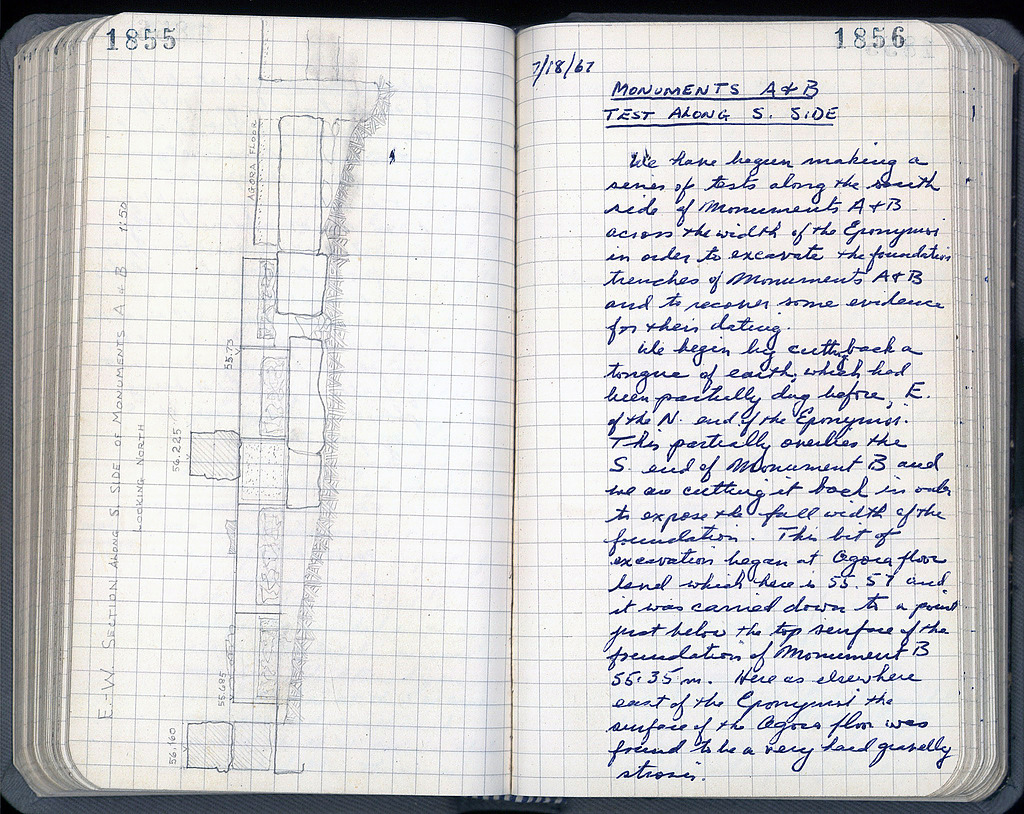 1855
E.-W. SECTION ALONG S. SIDE OF MONUMENTS A & B 1:50
LOOKING NORTH
AGORA FLOOR
55.73
56.225
55.685
56.160
1856
7/18/67
MONUMENTS A & B
TEST ALONG S. SIDE
We have begun making a
series of tests along the south
side of Monuments A & B
across the width of the Eponymoi
in order to excavate the foundation
trenches of Monuments A & B
and to recover some evidence
for their dating.
We begin by cutting back a
tongue of earth, which had
been partially dug before, E.
of the N. end of the Eponymoi.
This partially overlies the
S. end of Monument B and
we are cutting it back in order
to expose the full width of the
foundation. This bit of
excavation began at Agora floor
level which here is 55.57 and
it was carried down to a point
just below the top surface of the
foundation of Monument B
55.35 m. Here as elsewhere
east of the Eponymoi the
surface of the Agora floor was
found to be a very hard gravelly
strosis.